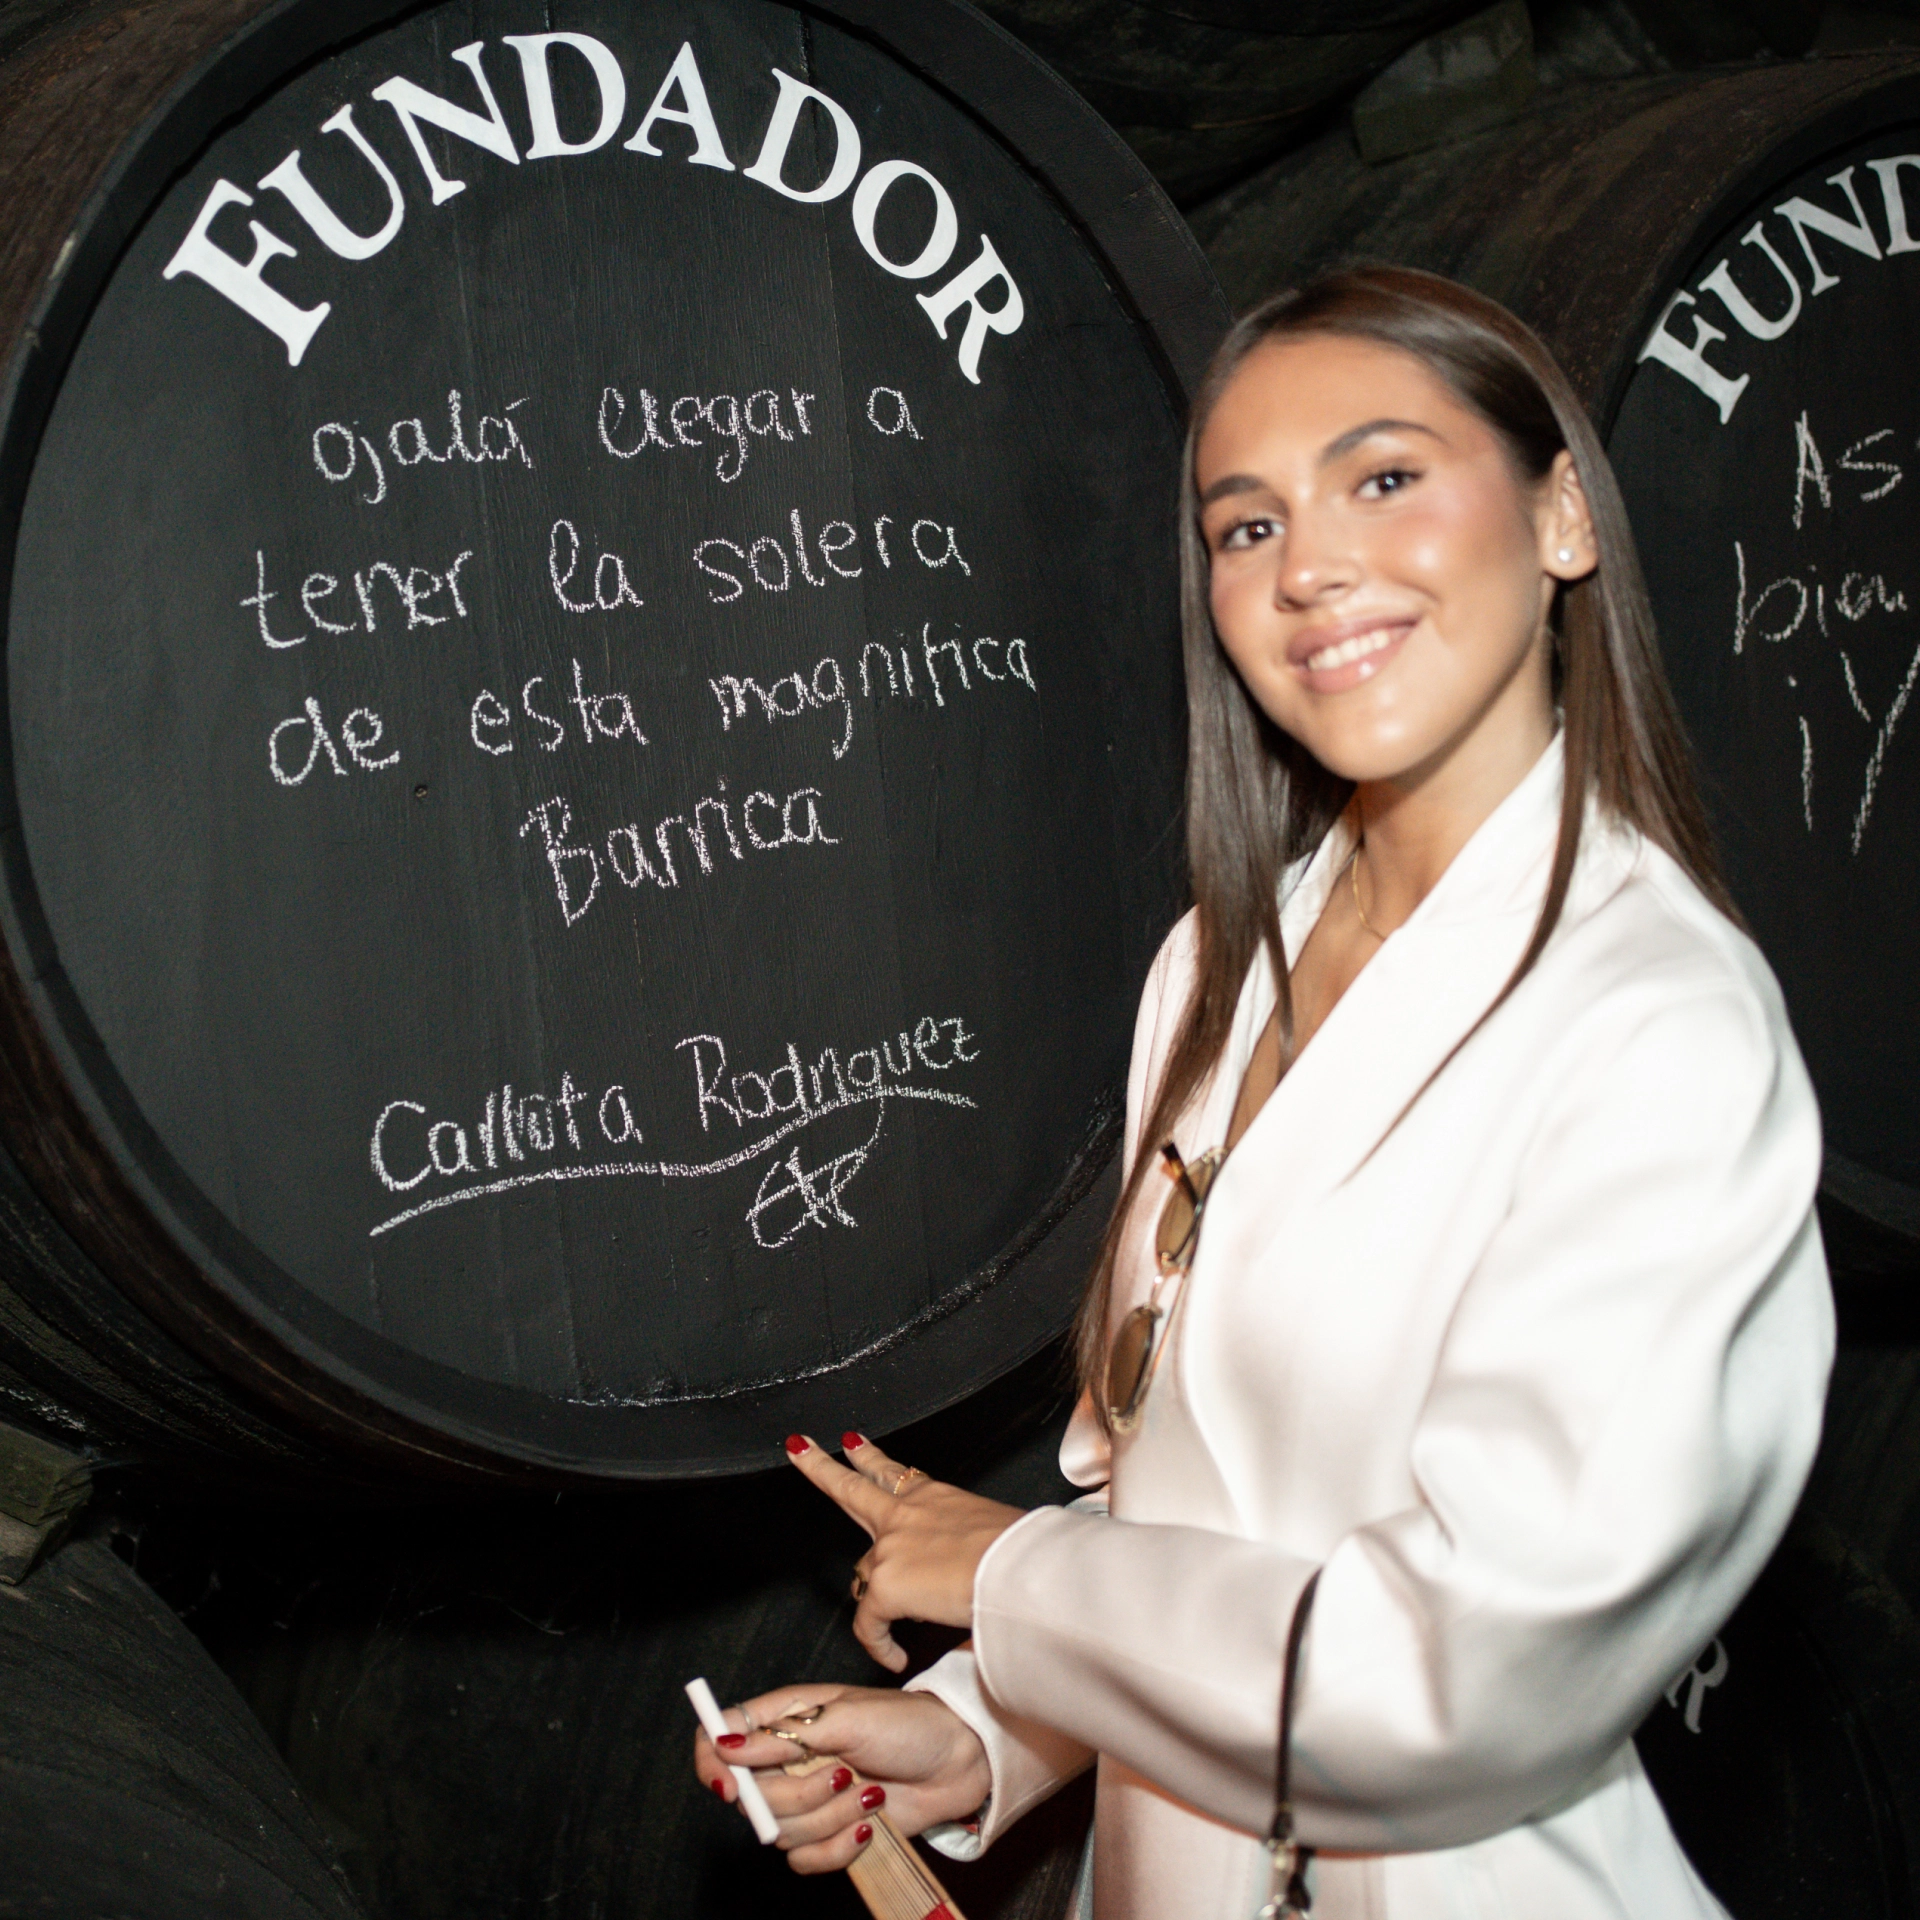 FUNDADOR
ojalá llegar a
tener la solera
de esta magnifica
Barrica
Carlota Rodriguez
FUND
As
bien
¡Y
R